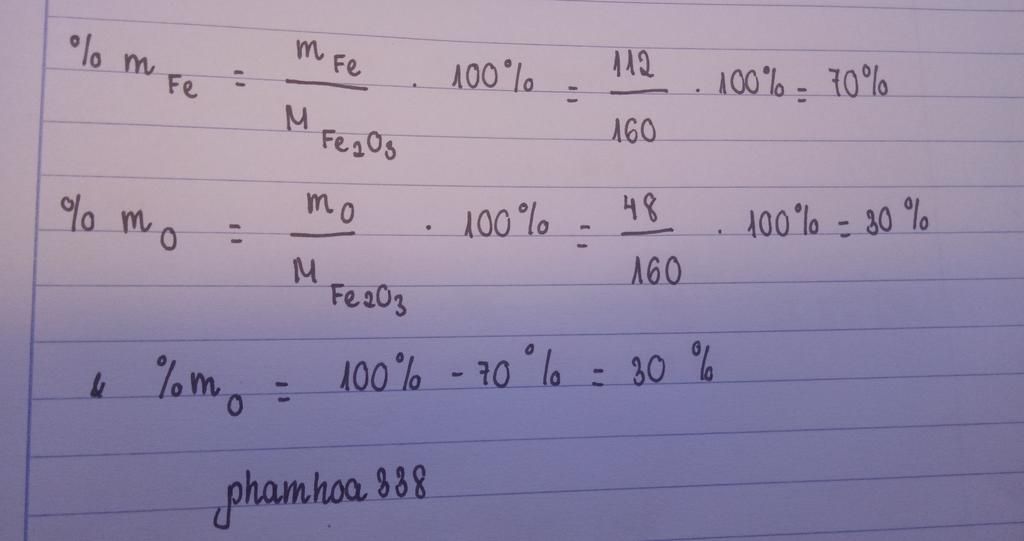 % m Fe = m Fe / M Fe2O3 . 100% = 112 / 160 . 100% = 70%
% m O = m O / M Fe2O3 . 100% = 48 / 160 . 100% = 30%
%m O = 100% - 70% = 30%
phamhoa338